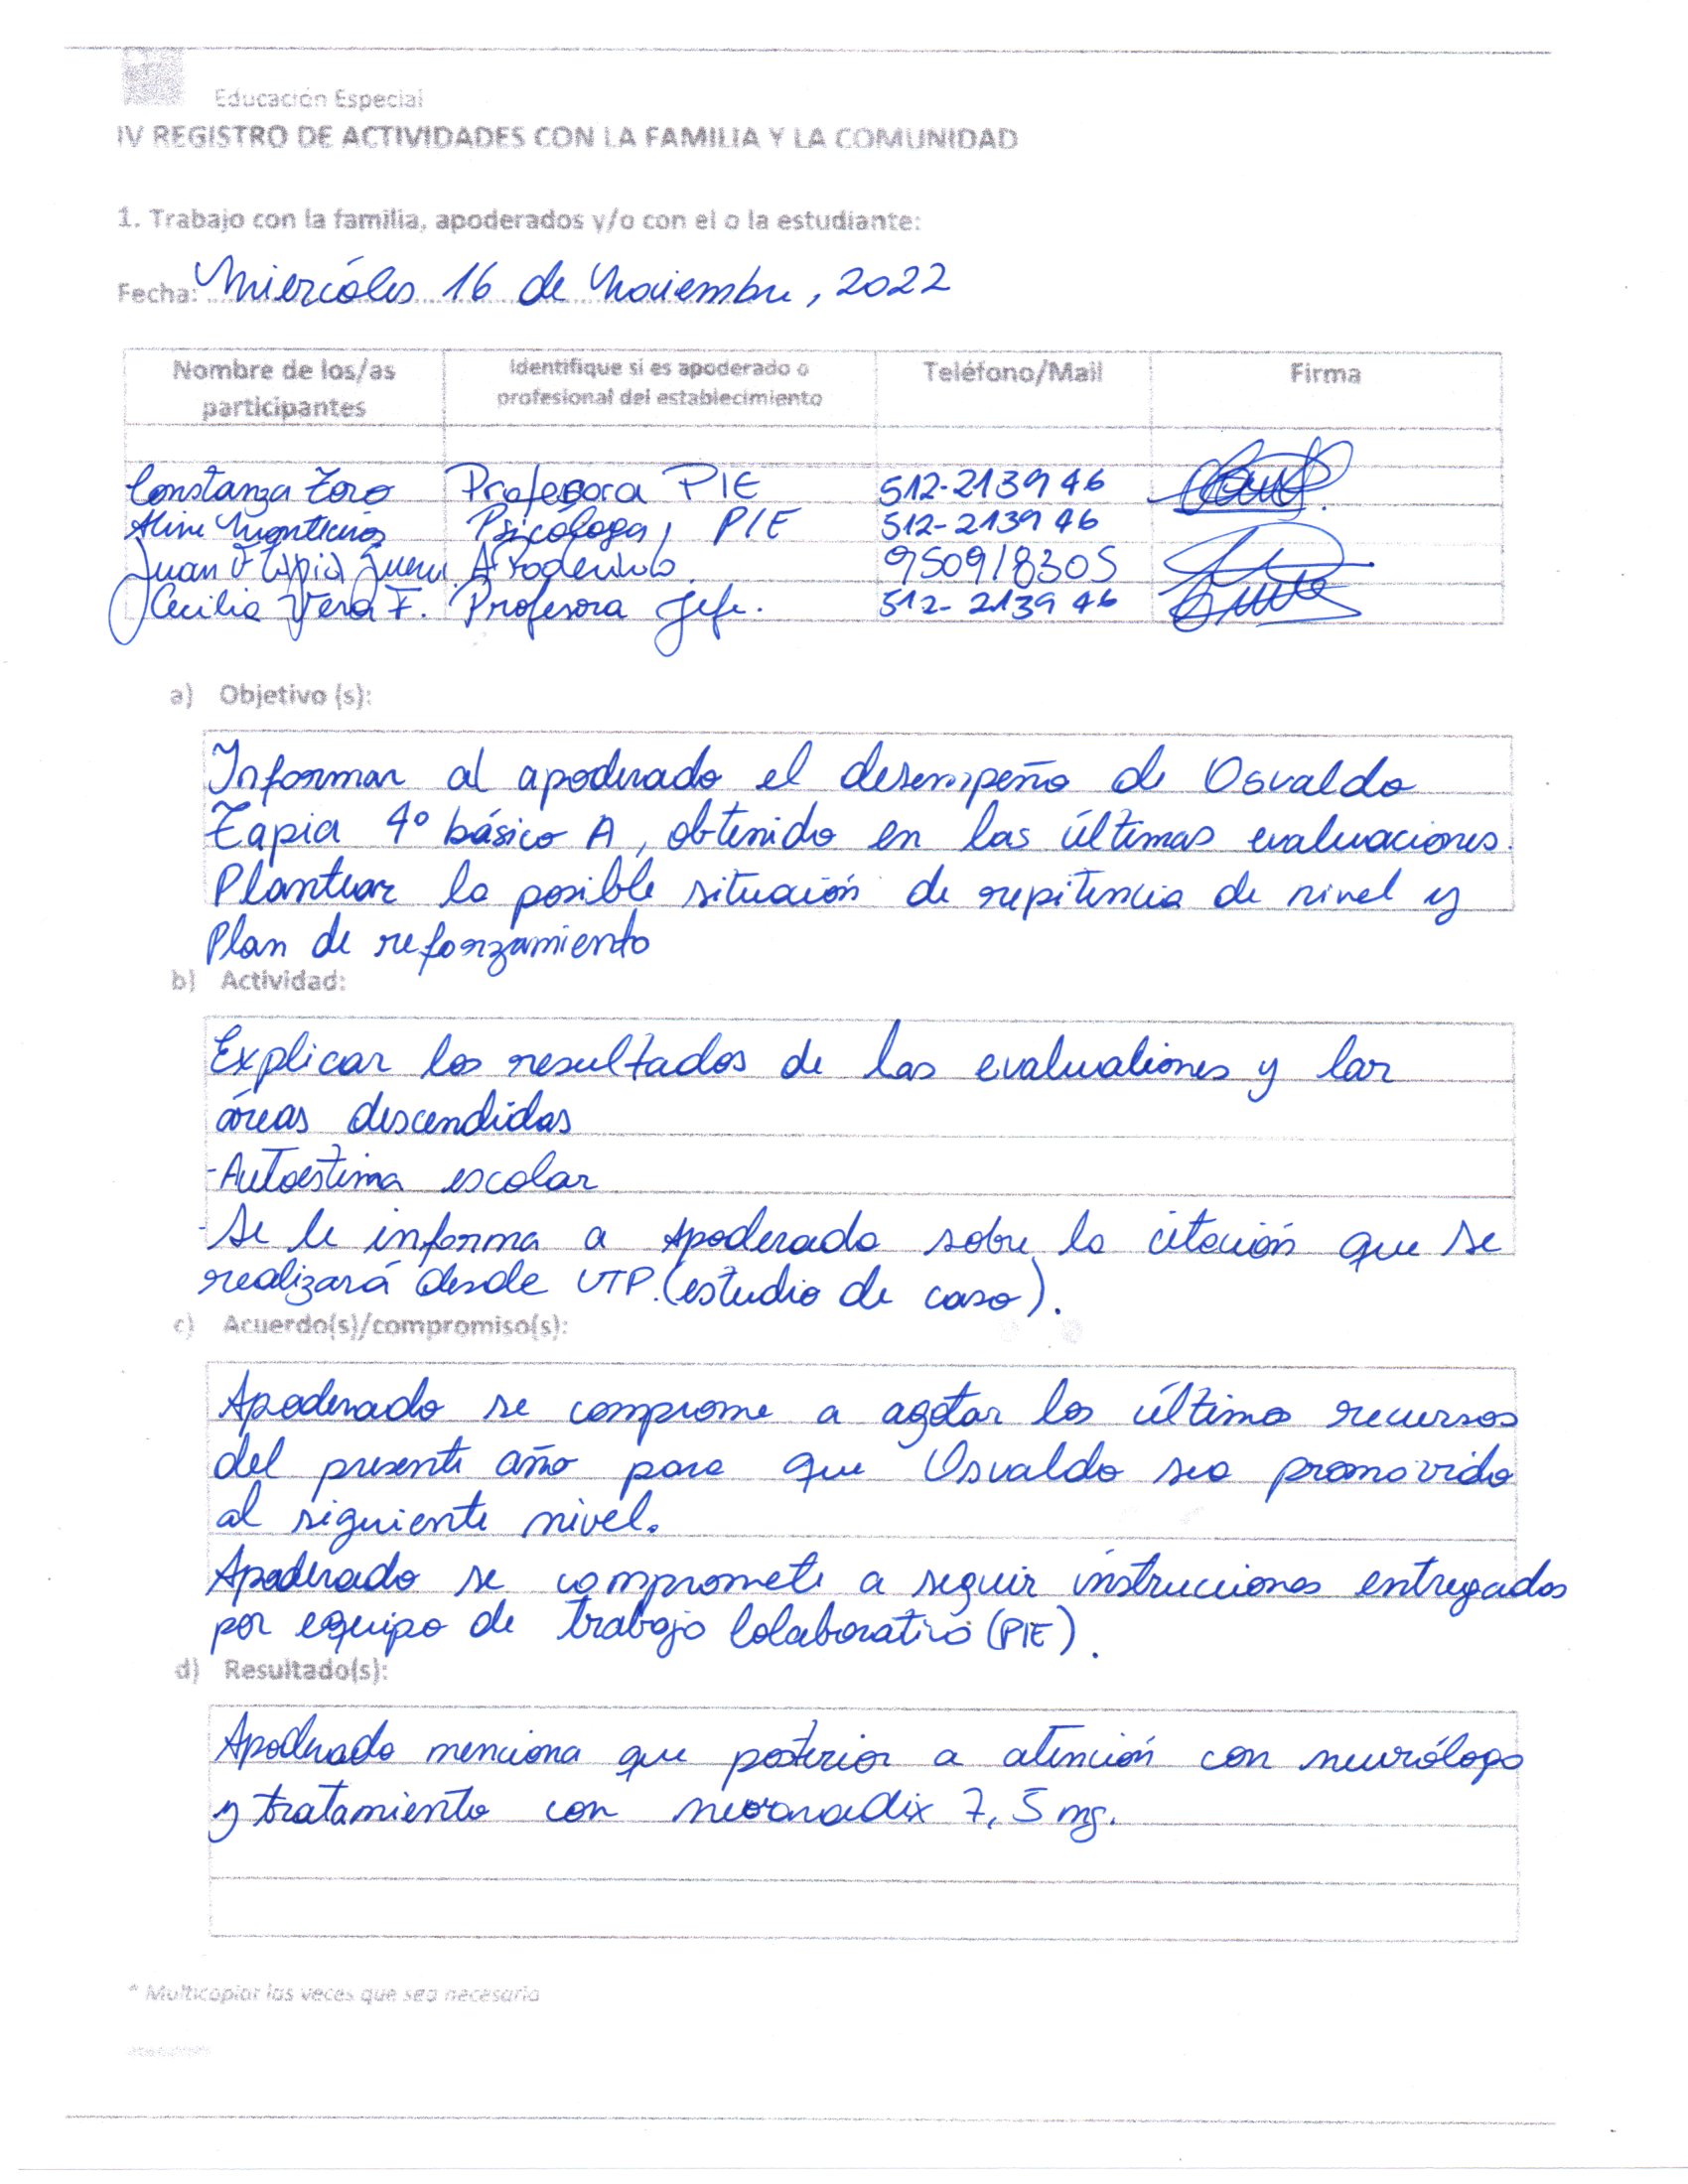 Educación Especial
IV REGISTRO DE ACTIVIDADES CON LA FAMILIA Y LA COMUNIDAD
1. Trabajo con la familia, apoderados y/o con el o la estudiante:
Fecha: Miercóles 16 de Noviembre, 2022
Nombre de los/as participantes Identifique si es apoderado o profesional del establecimiento Teléfono/Mail Firma
Constanza Toro Profesora PIE 512-213946
Psicóloga, PIE 512-213946
Juan Tapia Apoderado. 950918305
Cecilia Vera F. Profesora Jefe. 512-213946
a) Objetivo (s):
Informar al apoderado el desempeño de Osvaldo
Tapia 4° básico A, obtenido en las últimas evaluaciones.
Plantear la posible situación de repitencia de nivel y
Plan de reforzamiento
b) Actividad:
Explicar los resultados de las evaluaciones y las
áreas descendidas
- Autoestima escolar
- Se le informa a apoderado sobre la citación que se
realizará desde UTP. (estudio de caso).
c) Acuerdo(s)/compromiso(s):
Apoderado se comprome a agotar los últimos recursos
del presente año para que Osvaldo sea promovido
al siguiente nivel.
Apoderado se compromete a seguir instrucciones entregadas
por equipo de trabajo colaborativo (PIE).
d) Resultado(s):
Apoderado menciona que posterior a atención con neurólogo
y tratamiento con 7,5 mg.
* Multicopiar las veces que sea necesario